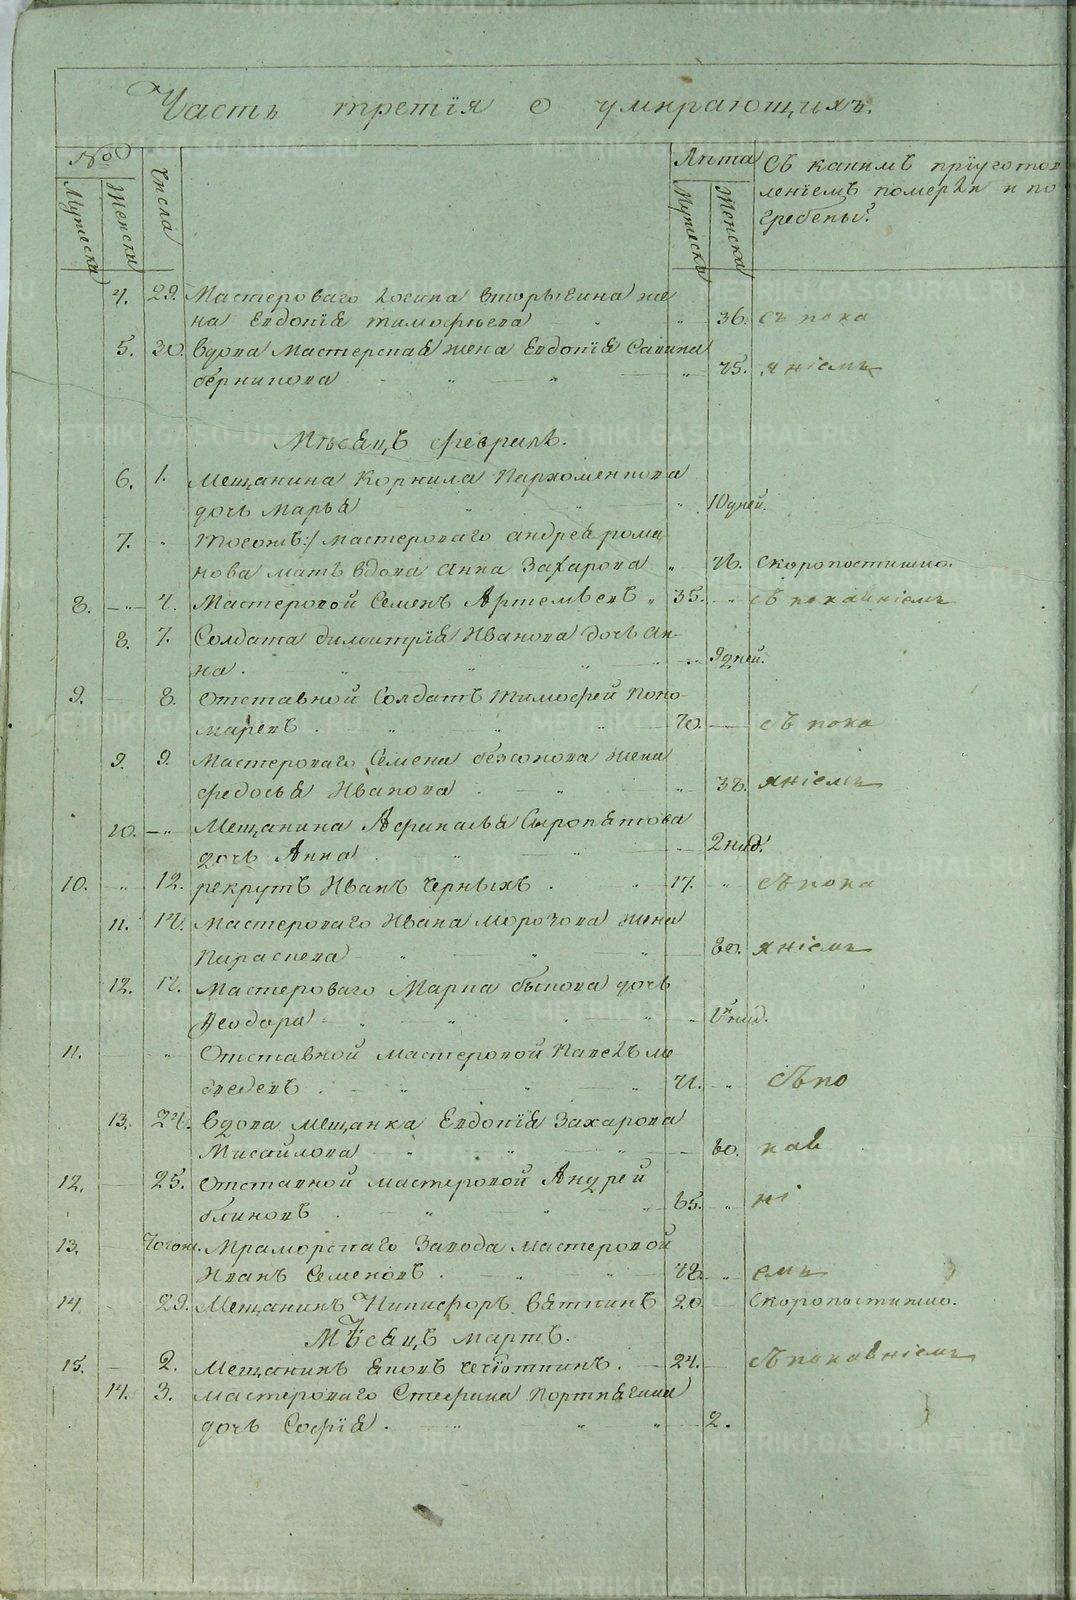 Часть третія о умирающихъ.
№ Числа Лѣта Съ какимъ пріуготов
Мужеска Женска Мужеска Женска леніемъ померли и по
гребены?
4. 29. Мастероваго Іосипа Вторыгина же
на Евдокія Тимофѣева 36. съ пока
5. 30. Вдова мастерская жена Евдокія Савина
75. яніемъ
Мѣсяцъ Февраль.
6. 1. Мещанина Корнила Пархоменкова
дочь Марья 10 дней.
7. Тогожъ:/ мастероваго Андрея Рома
нова мать вдова Анна Захарова 76. скоропостижно.
8. 4. Мастеровой Семенъ Артемьевъ 35. съ покаяніемъ
8. 7. Солдата Димитрія Иванова дочь Ан-
на. 9 дней.
9. 8. Отставной Солдатъ Тимофей Поно
маревъ. 70. съ пока
9. 9. Мастероваго Семена Безсонова жена
Федосья Иванова 38. яніемъ
10. Мещанина Афанасья Сыропятова
дочь Анна 2 нид.
10. 12. рекрутъ Иванъ Черныхъ. 17. съ пока
11. 14. Мастероваго Ивана Морозова жена
80. яніемъ
12. 17. Мастероваго Марка Быкова дочь
Ѳеодора нид.
11. Отставной мастеровой Павелъ Ме
двѣдевъ. 71. съ по
13. 24. Вдова мещанка Евдокія Захарова
Мисайлова 60. кая
12. 25. Отставной мастеровой Андрей
Блиновъ. 65. ні
13. Тогожъ. Мраморскаго Завода мастеровой
Иванъ Семеновъ. 78. емъ
14. 29. Мещанинъ Никифоръ Вяткинъ 20. скоропостижно.
Мѣсяцъ Мартъ.
15. 2. Мещанинъ Яковъ 24. съ покаяніемъ
14. 3. Мастероваго Стефана Портнягина
дочь Софія. 2.
METRIKI.GASO-URAL.RU